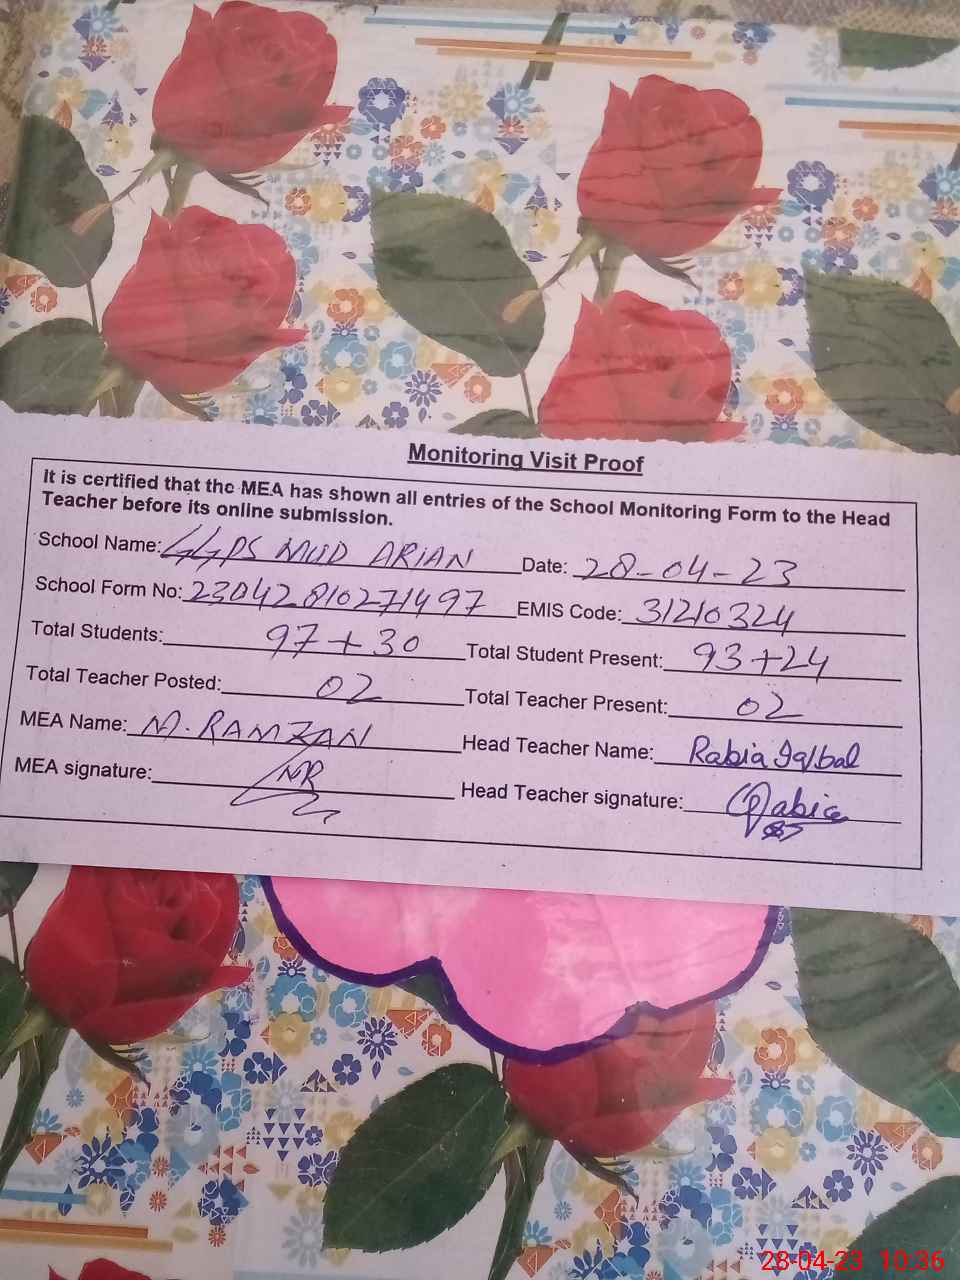 Monitoring Visit Proof
It is certified that the MEA has shown all entries of the School Monitoring Form to the Head
Teacher before its online submission.
School Name: GGPS MUD ARIAN Date: 28-04-23
School Form No: 23042810271497 EMIS Code: 31210324
Total Students: 97+30 Total Student Present: 93+24
Total Teacher Posted: 02 Total Teacher Present: 02
MEA Name: M. RAMZAN Head Teacher Name: Rabia Iqbal
MEA signature: MR Head Teacher signature: Rabia
28-04-23 10:36